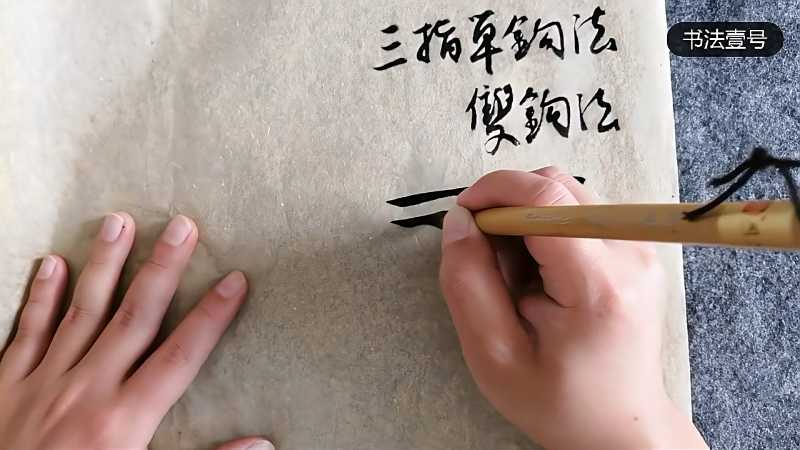 三指单鈎法
雙鈎法
书法壹号